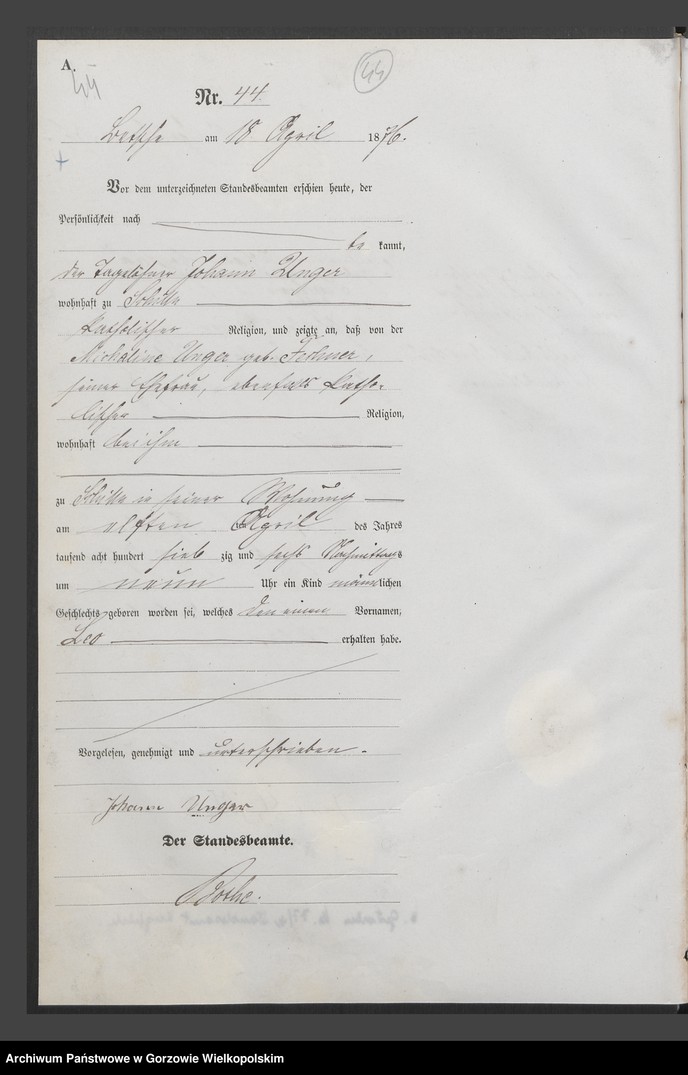 A.
44
44
Nr. 44.
Betsche am 18 April 1876.
Vor dem unterzeichneten Standesbeamten erschien heute, der
Persönlichkeit nach
be kannt,
der Tagelöhner Johann Unger
wohnhaft zu
katholischer Religion, und zeigte an, daß von der
Michaline Unger geb. Fechner,
seiner Ehefrau, ebenfalls katho-
lischer Religion,
wohnhaft bei ihm
zu in seiner Wohnung
am elften April des Jahres
tausend acht hundert sieb zig und sechs Nachmittags
um neun Uhr ein Kind männlichen
Geschlechts geboren worden sei, welches den einen Vornamen,
Leo erhalten habe.
Vorgelesen, genehmigt und unterschrieben.
Johann Unger
Der Standesbeamte.
Bothe.
Archiwum Państwowe w Gorzowie Wielkopolskim